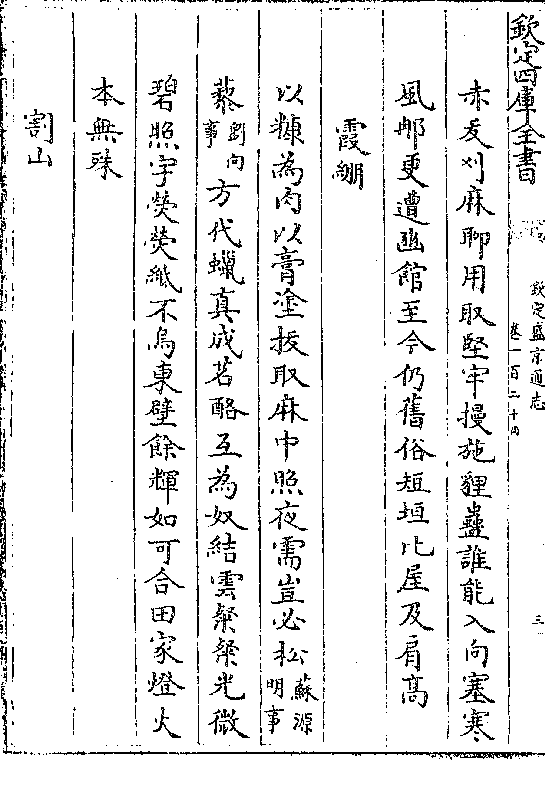 欽定四庫全書
欽定盛京通志
卷一百二十四
三
赤爰刈麻聊用取堅牢墁施貍蠱誰能入向塞寒
風郍更遭豳館至今仍舊俗短垣比屋及肩髙
霞綳
以糠為肉以膏塗拔取麻中照夜需豈必松蘇源明事
藜劉向事方代蠟真成茗酪互為奴結雲粲粲光微
碧照字熒熒紙不烏東壁餘輝如可合田家燈火
本無殊
割山